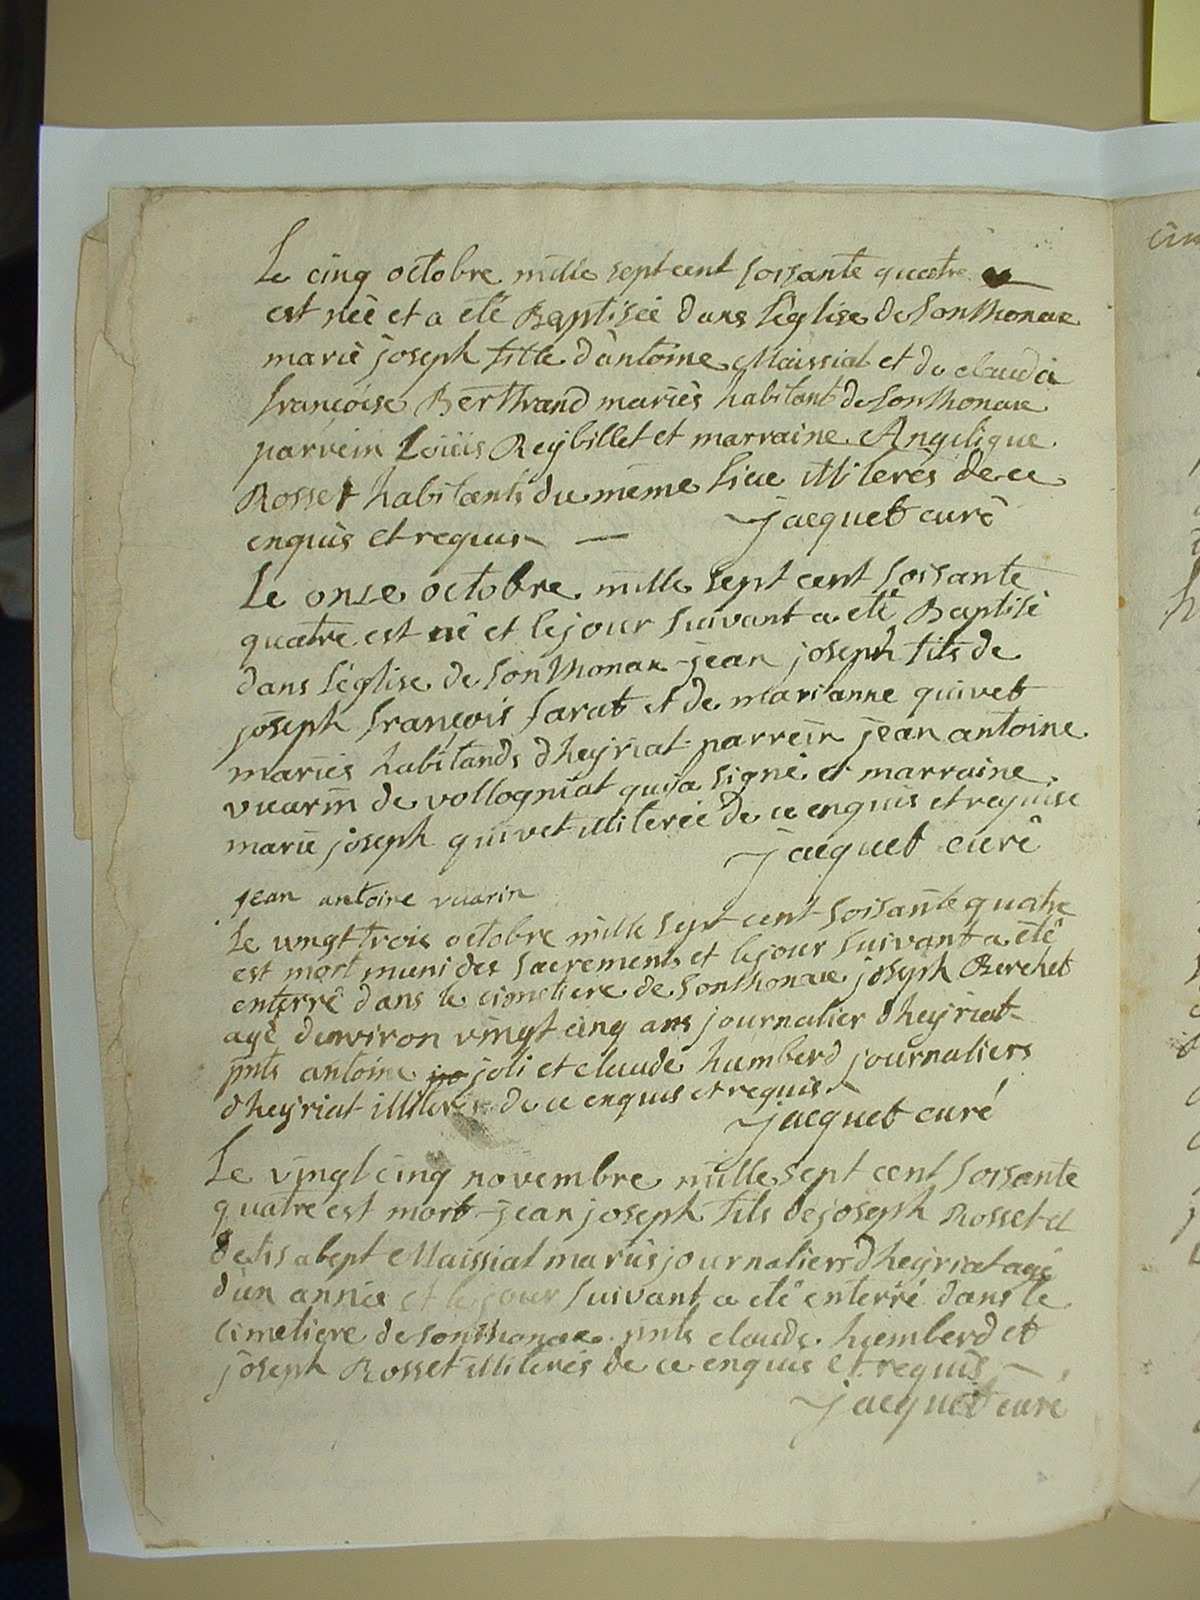 Le cinq octobre mille sept cent soisante quatre
est née et a eté Baptisée dans l'église de Sonthonax
marie joseph fille d'antoine Maissiat et de claudà
françoise Berthrand mariès habitant de Sonthonax
parrein Loüis Reybillet et marraine Angelique
Rosset habitants du même lieu illiterés de ce
enquis et requis
jacquet curé
Le onze octobre mille sept cent soisante
quatre est né et le jour suivant a eté Baptisé
dans l'église de Sonthonax jean joseph fils de
joseph françois farat et de marianne quivet
mariés habitands d'heyriat parrein jean antoine
vuarin de vollogniat qui a signé et marraine
marie joseph quivet illiterée de ce enquis et requise
jacquet curé
jean antoine vuarin
Le vingt trois octobre mille sept cent soisante quatre
est mort muni des sacrements et le jour suivant a eté
enterré dans le cimetiere de Sonthonax joseph Berchet
agé d'environ vingt cinq ans journalier d'heyriat
pnts antoine joli et claude humberd journaliers
d'heyriat illiterés de ce enquis et requis
jacquet curé
Le vingt cinq novembre mille sept cent soisante
quatre est mort jean joseph fils de joseph Rosset et
d'elisabept Maissiat mariés journaliers d'heyriat agé
d'un année et le jour suivant a eté enterré dans le
cimetiere de Sonthonax pnts claude humberd et
joseph Rosset illiterés de ce enquis et requis
jacquet curé